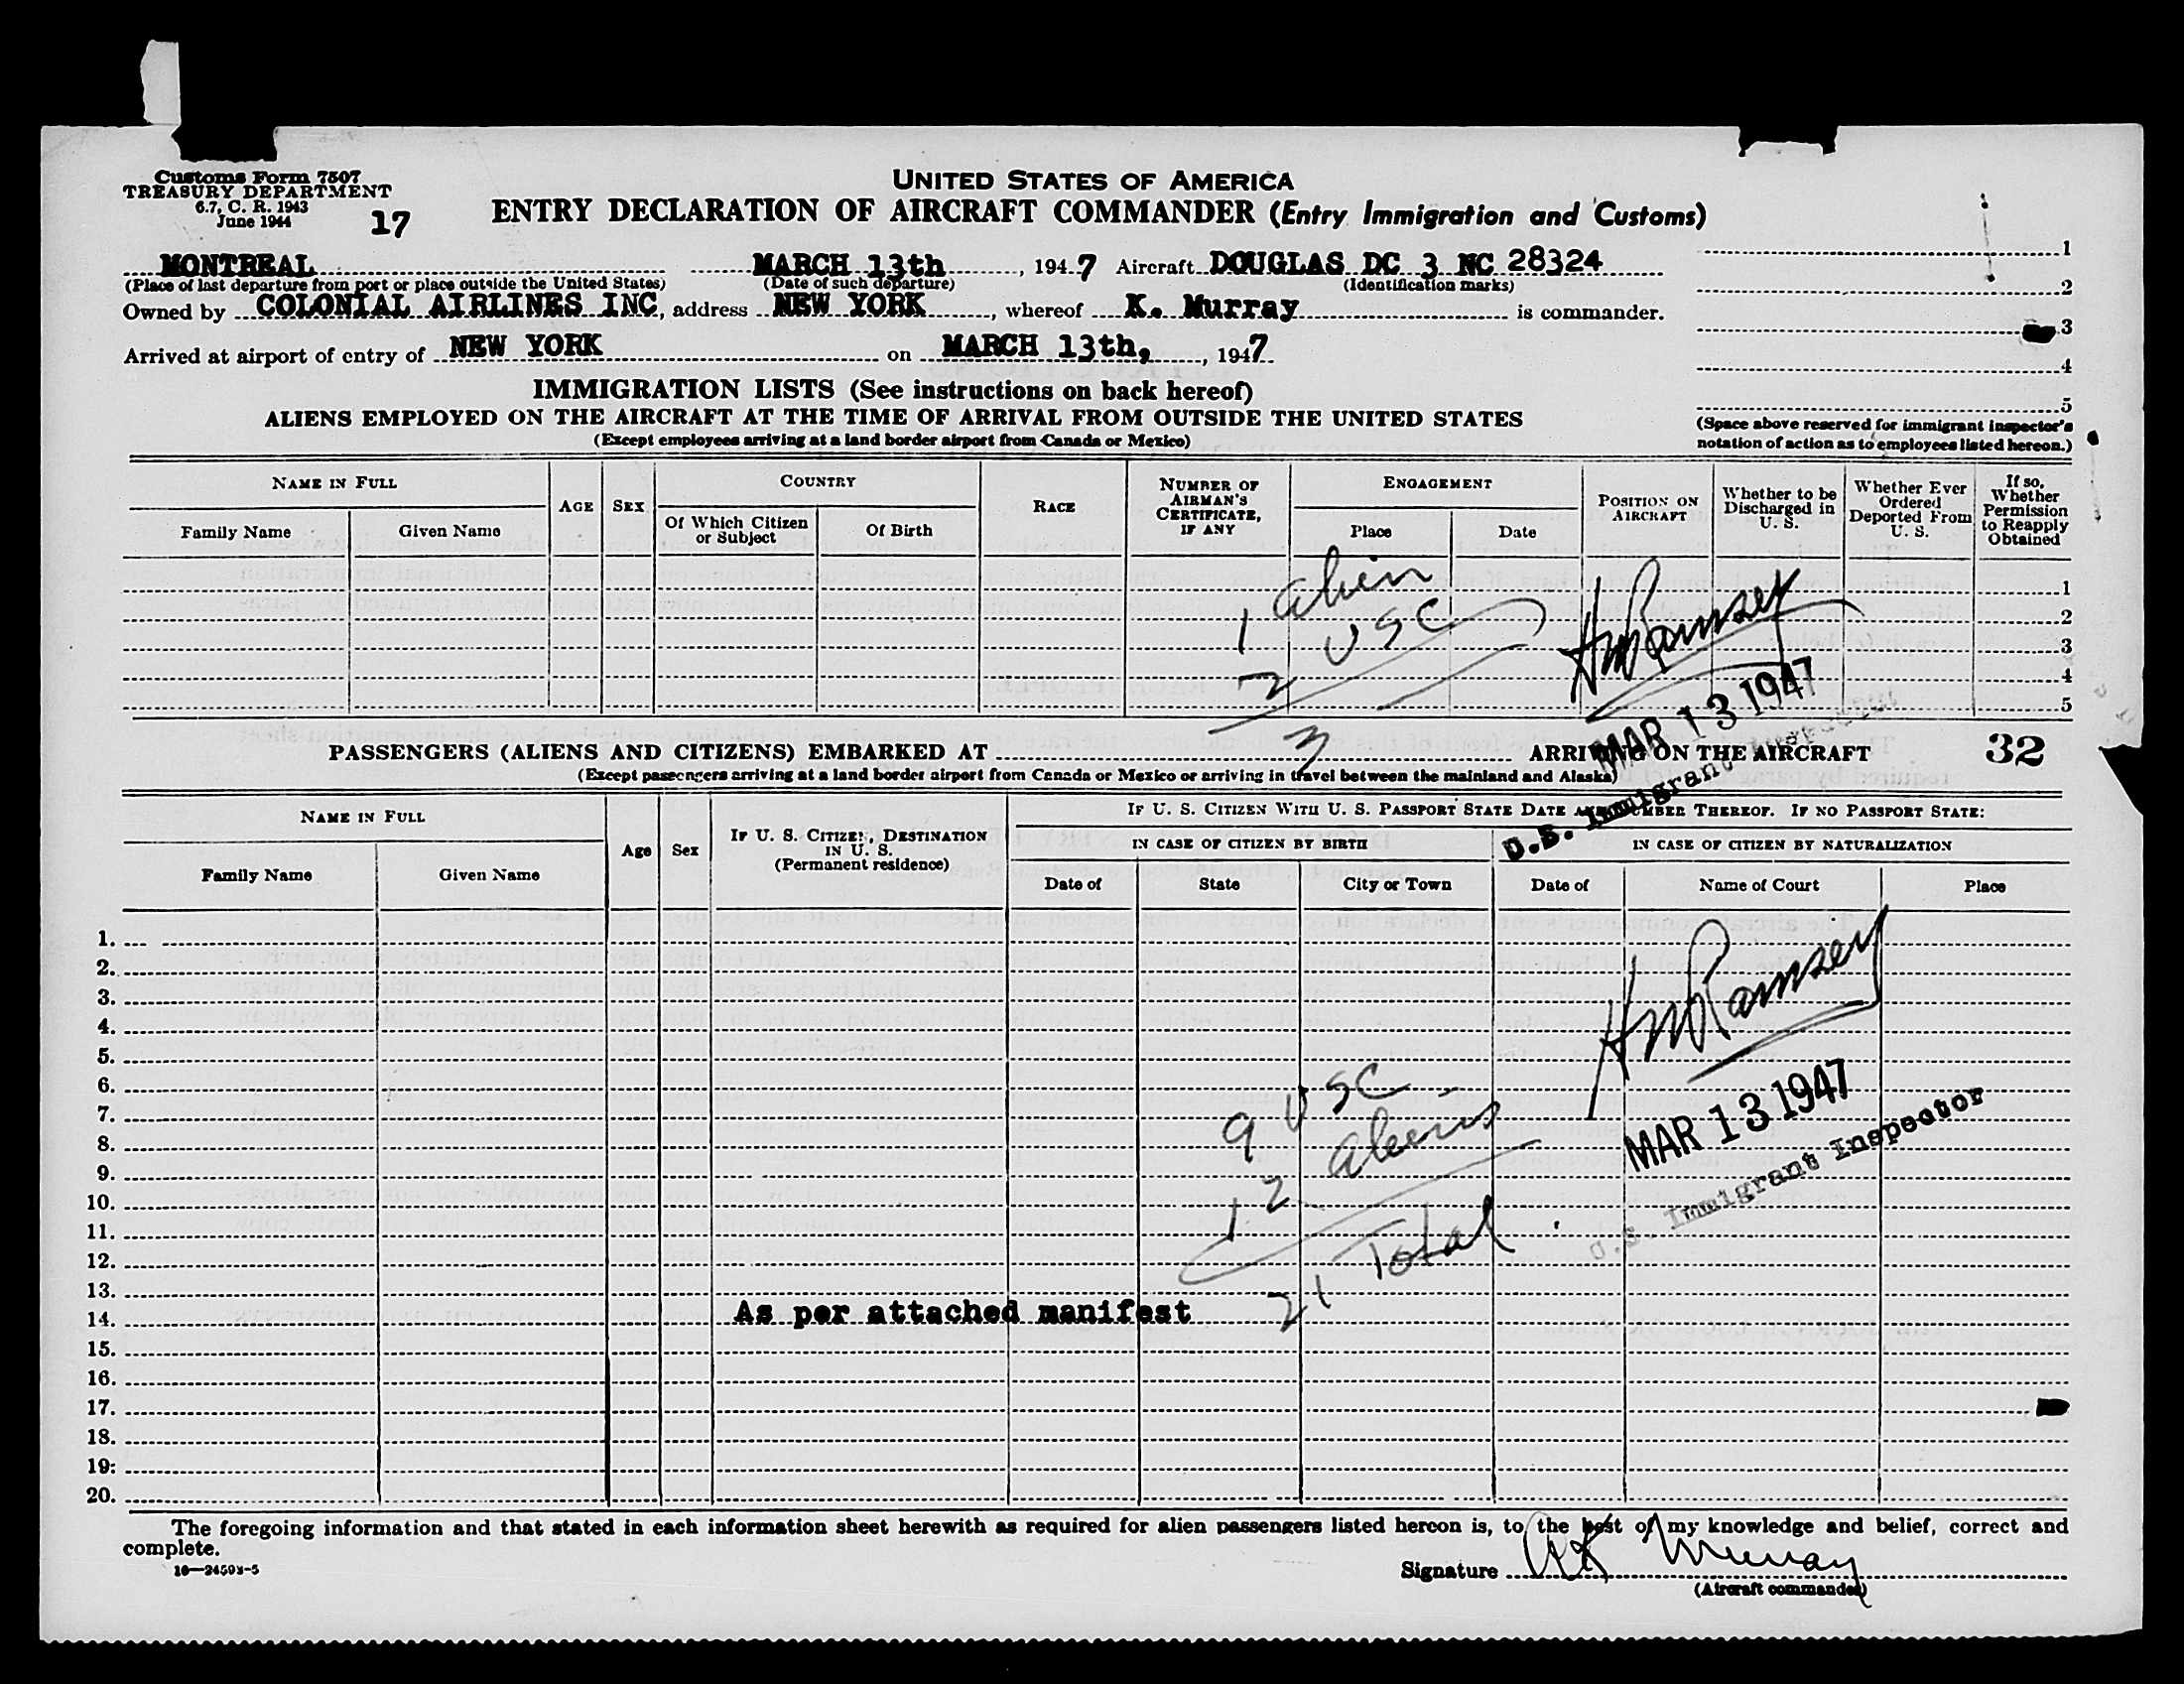 Customs Form 7507
TREASURY DEPARTMENT
6.7, C. R. 1943
June 1944
17
UNITED STATES OF AMERICA
ENTRY DECLARATION OF AIRCRAFT COMMANDER (Entry Immigration and Customs)
MONTREAL MARCH 13th, 1947 Aircraft DOUGLAS DC 3 NC 28324
(Place of last departure from port or place outside the United States) (Date of such departure) (Identification marks)
Owned by COLONIAL AIRLINES INC, address NEW YORK, whereof K. Murray is commander.
Arrived at airport of entry of NEW YORK on MARCH 13th, 1947
1
2
3
4
5
(Space above reserved for immigrant inspector's
notation of action as to employees listed hereon.)
IMMIGRATION LISTS (See instructions on back hereof)
ALIENS EMPLOYED ON THE AIRCRAFT AT THE TIME OF ARRIVAL FROM OUTSIDE THE UNITED STATES
(Except employees arriving at a land border airport from Canada or Mexico)
NAME IN FULL
Family Name Given Name
AGE SEX
COUNTRY
Of Which Citizen or Subject Of Birth
RACE
NUMBER OF AIRMAN'S CERTIFICATE, IF ANY
ENGAGEMENT
Place Date
POSITION ON AIRCRAFT
Whether to be Discharged in U. S.
Whether Ever Ordered Deported From U. S.
If so, Whether Permission to Reapply Obtained
1
2
3
4
5
1 alien
2 USC
3
HM Ramsey
MAR 13 1947
U.S. Immigrant Inspector
PASSENGERS (ALIENS AND CITIZENS) EMBARKED AT ARRIVING ON THE AIRCRAFT 32
(Except passengers arriving at a land border airport from Canada or Mexico or arriving in travel between the mainland and Alaska)
NAME IN FULL
Family Name Given Name
Age Sex
IF U. S. CITIZEN, DESTINATION IN U. S.
(Permanent residence)
IF U. S. CITIZEN WITH U. S. PASSPORT STATE DATE AND NUMBER THEREOF. IF NO PASSPORT STATE:
IN CASE OF CITIZEN BY BIRTH
Date of State City or Town
IN CASE OF CITIZEN BY NATURALIZATION
Date of Name of Court Place
1.
2.
3.
4.
5.
6.
7.
8.
9.
10.
11.
12.
13.
14. As per attached manifest
15.
16.
17.
18.
19.
20.
9 USC
12 aliens
21 Total
HM Ramsey
MAR 13 1947
U.S. Immigrant Inspector
The foregoing information and that stated in each information sheet herewith as required for alien passengers listed hereon is, to the best of my knowledge and belief, correct and
complete.
Signature K Murray
(Aircraft commander)